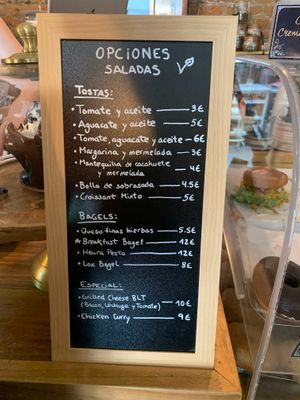 OPCIONES
SALADAS
TOSTAS:
• Tomate y aceite — 3€
• Aguacate y aceite — 5€
• Tomate, aguacate y aceite — 6€
• Margarina y mermelada — 3€
• Mantequilla de cacahuete y mermelada — 4€
• Bollo de sobrasada — 4.5€
• Croissant Mixto — 5€
BAGELS:
• Queso finas hierbas — 5.5€
* Breakfast Bagel — 12€
• Heura Pesto — 12€
• Lox Bagel — 8€
ESPECIAL:
• Grilled Cheese BLT — 10€
(Bacon, lechuga y Tomate)
• Chicken Curry — 9€